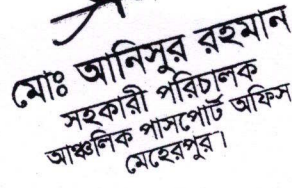 মোঃ আনিসুর রহমান
সহকারী পরিচালক
আঞ্চলিক পাসপোর্ট অফিস
মেহেরপুর।